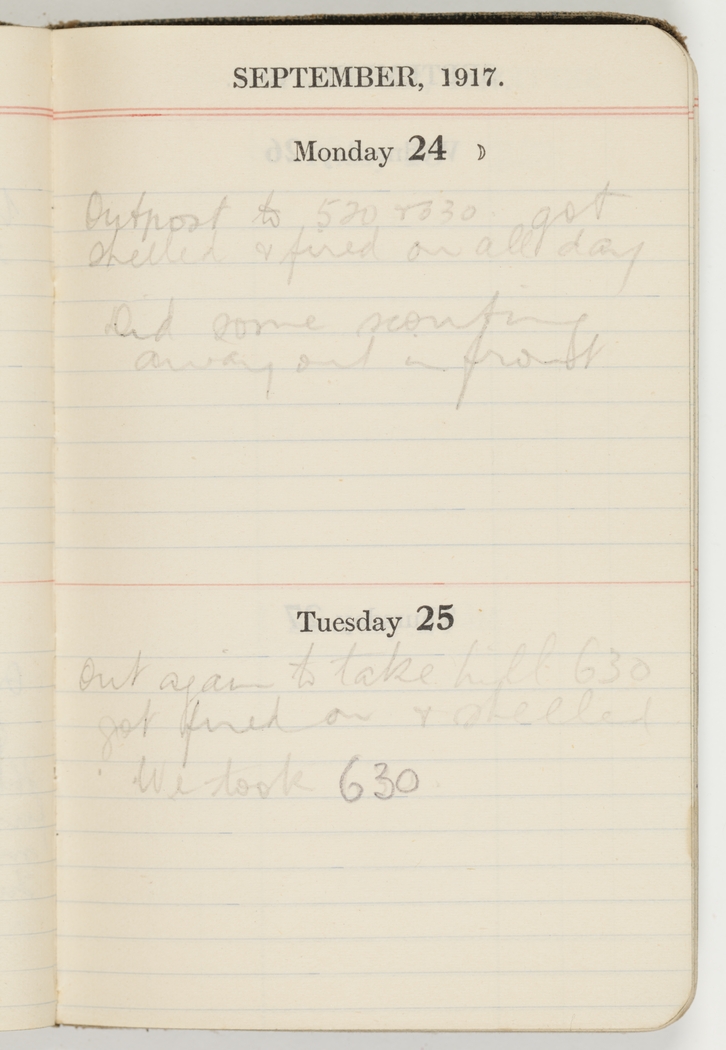 SEPTEMBER, 1917.
Monday 24
Outpost to 520 & 630. got
shelled & fired on all day
Did some scouting
away out in front
Tuesday 25
Out again to take hill 630
got fired on & shelled
We took 630